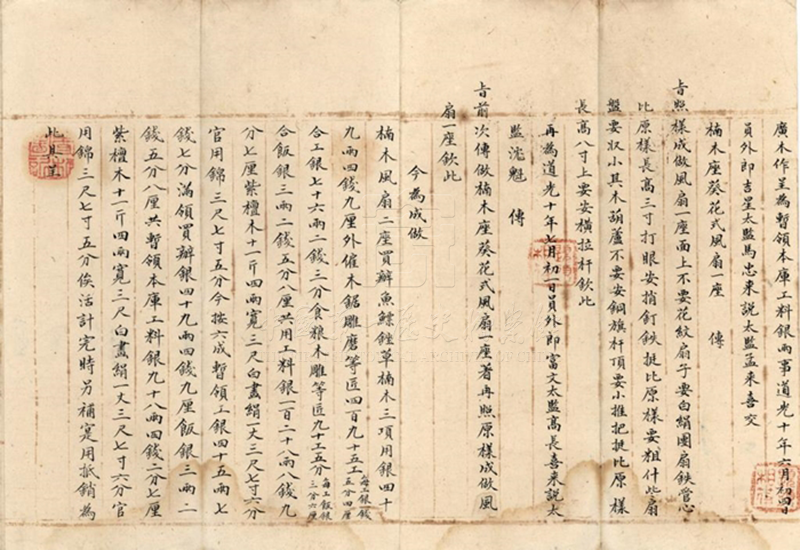 廣木作呈為暫領本庫工料銀兩事道光十年六月初四日
員外郎吉星太監馬忠來說太監孟來喜交
楠木座葵花式風扇一座　傳
旨照樣成做風扇一座面上不要花紋扇子要白絹團扇鉄管心
比原樣長高三寸打眼安捎釘鉄挺比原樣要粗什此扇
盤要收小其木葫蘆不要安銅旗杆頂要小推把挺比原樣
長高八寸上要安橫拉杆欽此
再為道光十年七月初一日員外郎富文太監高長喜來說太
監沈魁　傳
旨前次傳做楠木座葵花式風扇一座著再照原樣成做風
扇一座欽此
今為成做
楠木風扇二座買辦魚鰾銼草楠木三項用銀四十
九兩四錢九厘外僱木鋸雕磨等匠四百九十五工每工銀一錢五分四厘
合工銀七十六兩二錢三分食粮木雕等匠九十工五分每工飯銀三分六厘
合飯銀三兩二錢五分八厘共用工料銀一百二十八兩八錢九
分七厘紫檀木十一斤四兩寬三尺白畫絹一丈三尺七寸六分
官用錦三尺七寸五分今按六成暫領工銀四十五兩七
錢七分滿領買辦銀四十九兩四錢九厘飯銀三兩二
錢五分八厘共暫領本庫工料銀九十八兩四錢二分七厘
紫檀木十一斤四兩寬三尺白畫絹一丈三尺七寸六分官
用錦三尺七寸五分俟活計完時另補寔用抵銷為
此具呈